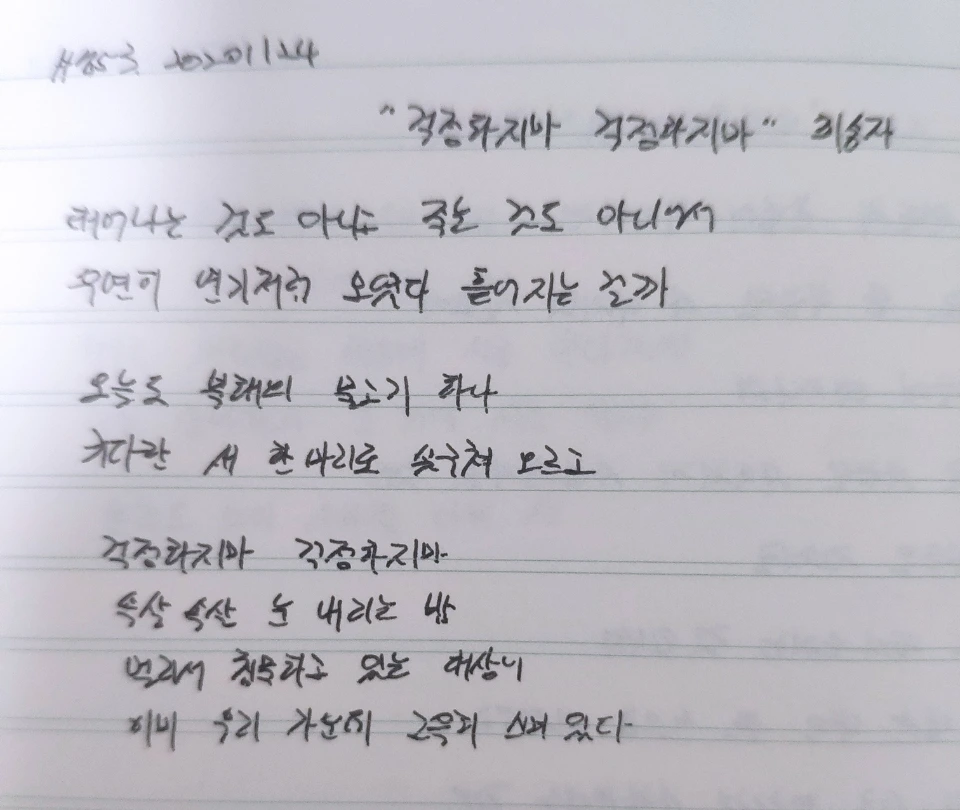 #853 20201124
"걱정하지마 걱정하지마" 최승자
태어나는 것도 아니고 죽는 것도 아니어서
우연히 연기처럼 모였다 흩어지는 걸까
오늘도 북해의 물고기 하나
커다란 새 한 마리로 솟구쳐 오르고
걱정하지마 걱정하지마
속살 속살 눈 내리는 밤
멀리서 침묵하고 있는 대상이
이미 우리 가운데 그윽히 스며 있다